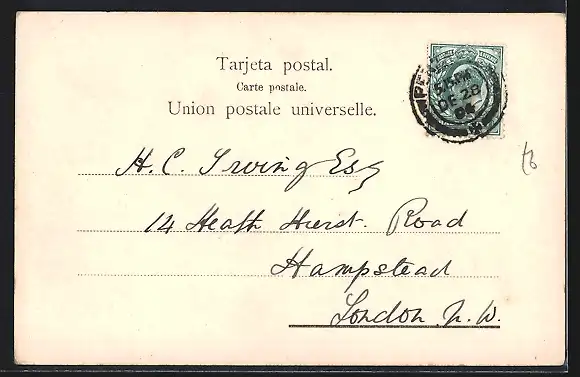 Tarjeta postal.
Carte postale.
Union postale universelle.
5.15 PM
DE 28
H. C. Irving Esq
14 Heath Hurst. Road
Hampstead
London N. W.